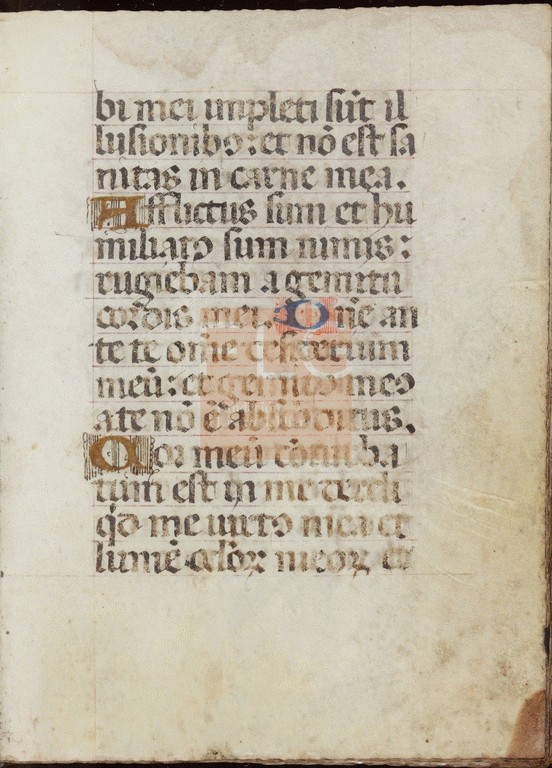 bi mei impleti sūt il
lusionibꝯ: et nō est sa
nitas in carne mea.
Afflictus sum et hu
miliatꝯ sum nimis:
rugiebam a gemitu
cordis mei. Dñe an
te te om̄e desiderium
meū: et gemitꝯ meꝯ
a te nō ē absco̅ditus.
Cor meū co̅turba
tum est in me dereli
q̇d me uirtꝯ mea et
lume̅ oculoꝝ meoꝝ et